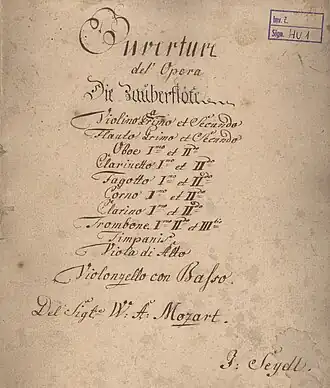 Inv. č.
Sign. HU 1
Ouverture
del' Opera
Die Zauberflöte
Violino Primo et Secundo
Flauto Primo et Secundo
Oboe I^mo et II^do
Clarinetto I^mo et II^do
Fagotto I^mo et II^do
Corno I^mo et II^do
Clarino I^mo et II^do
Trombone I^mo II^do et III^tio
Timpanis
Viola di Alto
Violonzello con Basso.
Del Sig^re W. A. Mozart.
J. Seydl